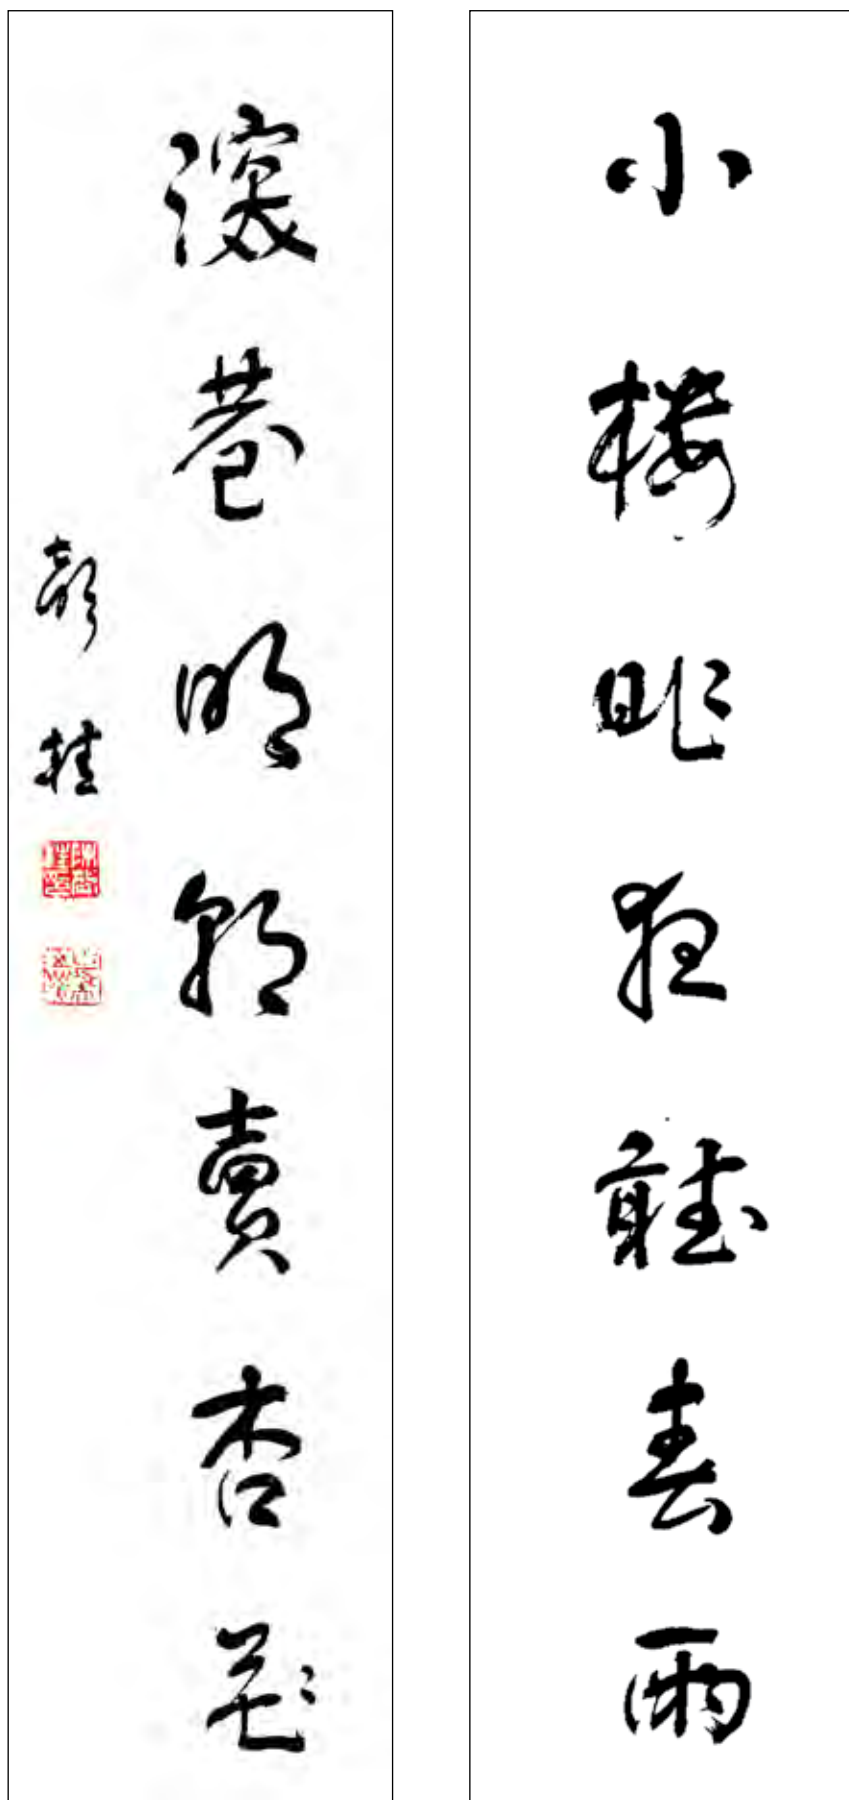 小樓昨夜聽春雨
深巷明朝賣杏花
桂